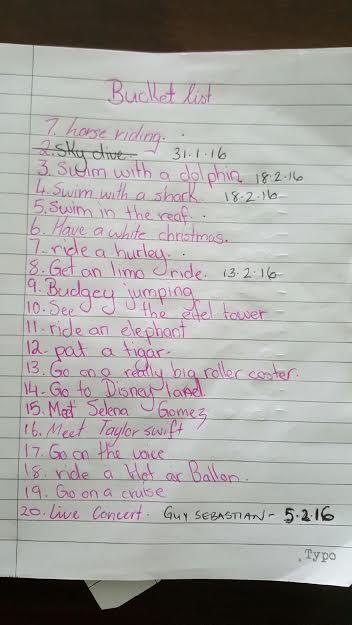 Bucket list
1. horse riding.
2. sky dive - 31.1.16
3. Swim with a dolphin 18.2.16
4. Swim with a shark 18.2.16
5. Swim in the reaf.
6. Have a white christmas.
7. ride a hurley.
8. Get an limo ride. 13.2.16
9. Budgey jumping
10. See the eifel tower
11. ride an elephant
12. pat a tigar.
13. Go on a really big roller coster.
14. Go to Disney land.
15. Met Selena Gomez
16. Meet Taylor swift
17. Go on the voice
18. ride a Hot ar Ballon.
19. Go on a cruise
20. Live Concert. GUY SEBASTIAN - 5.2.16
.Typo